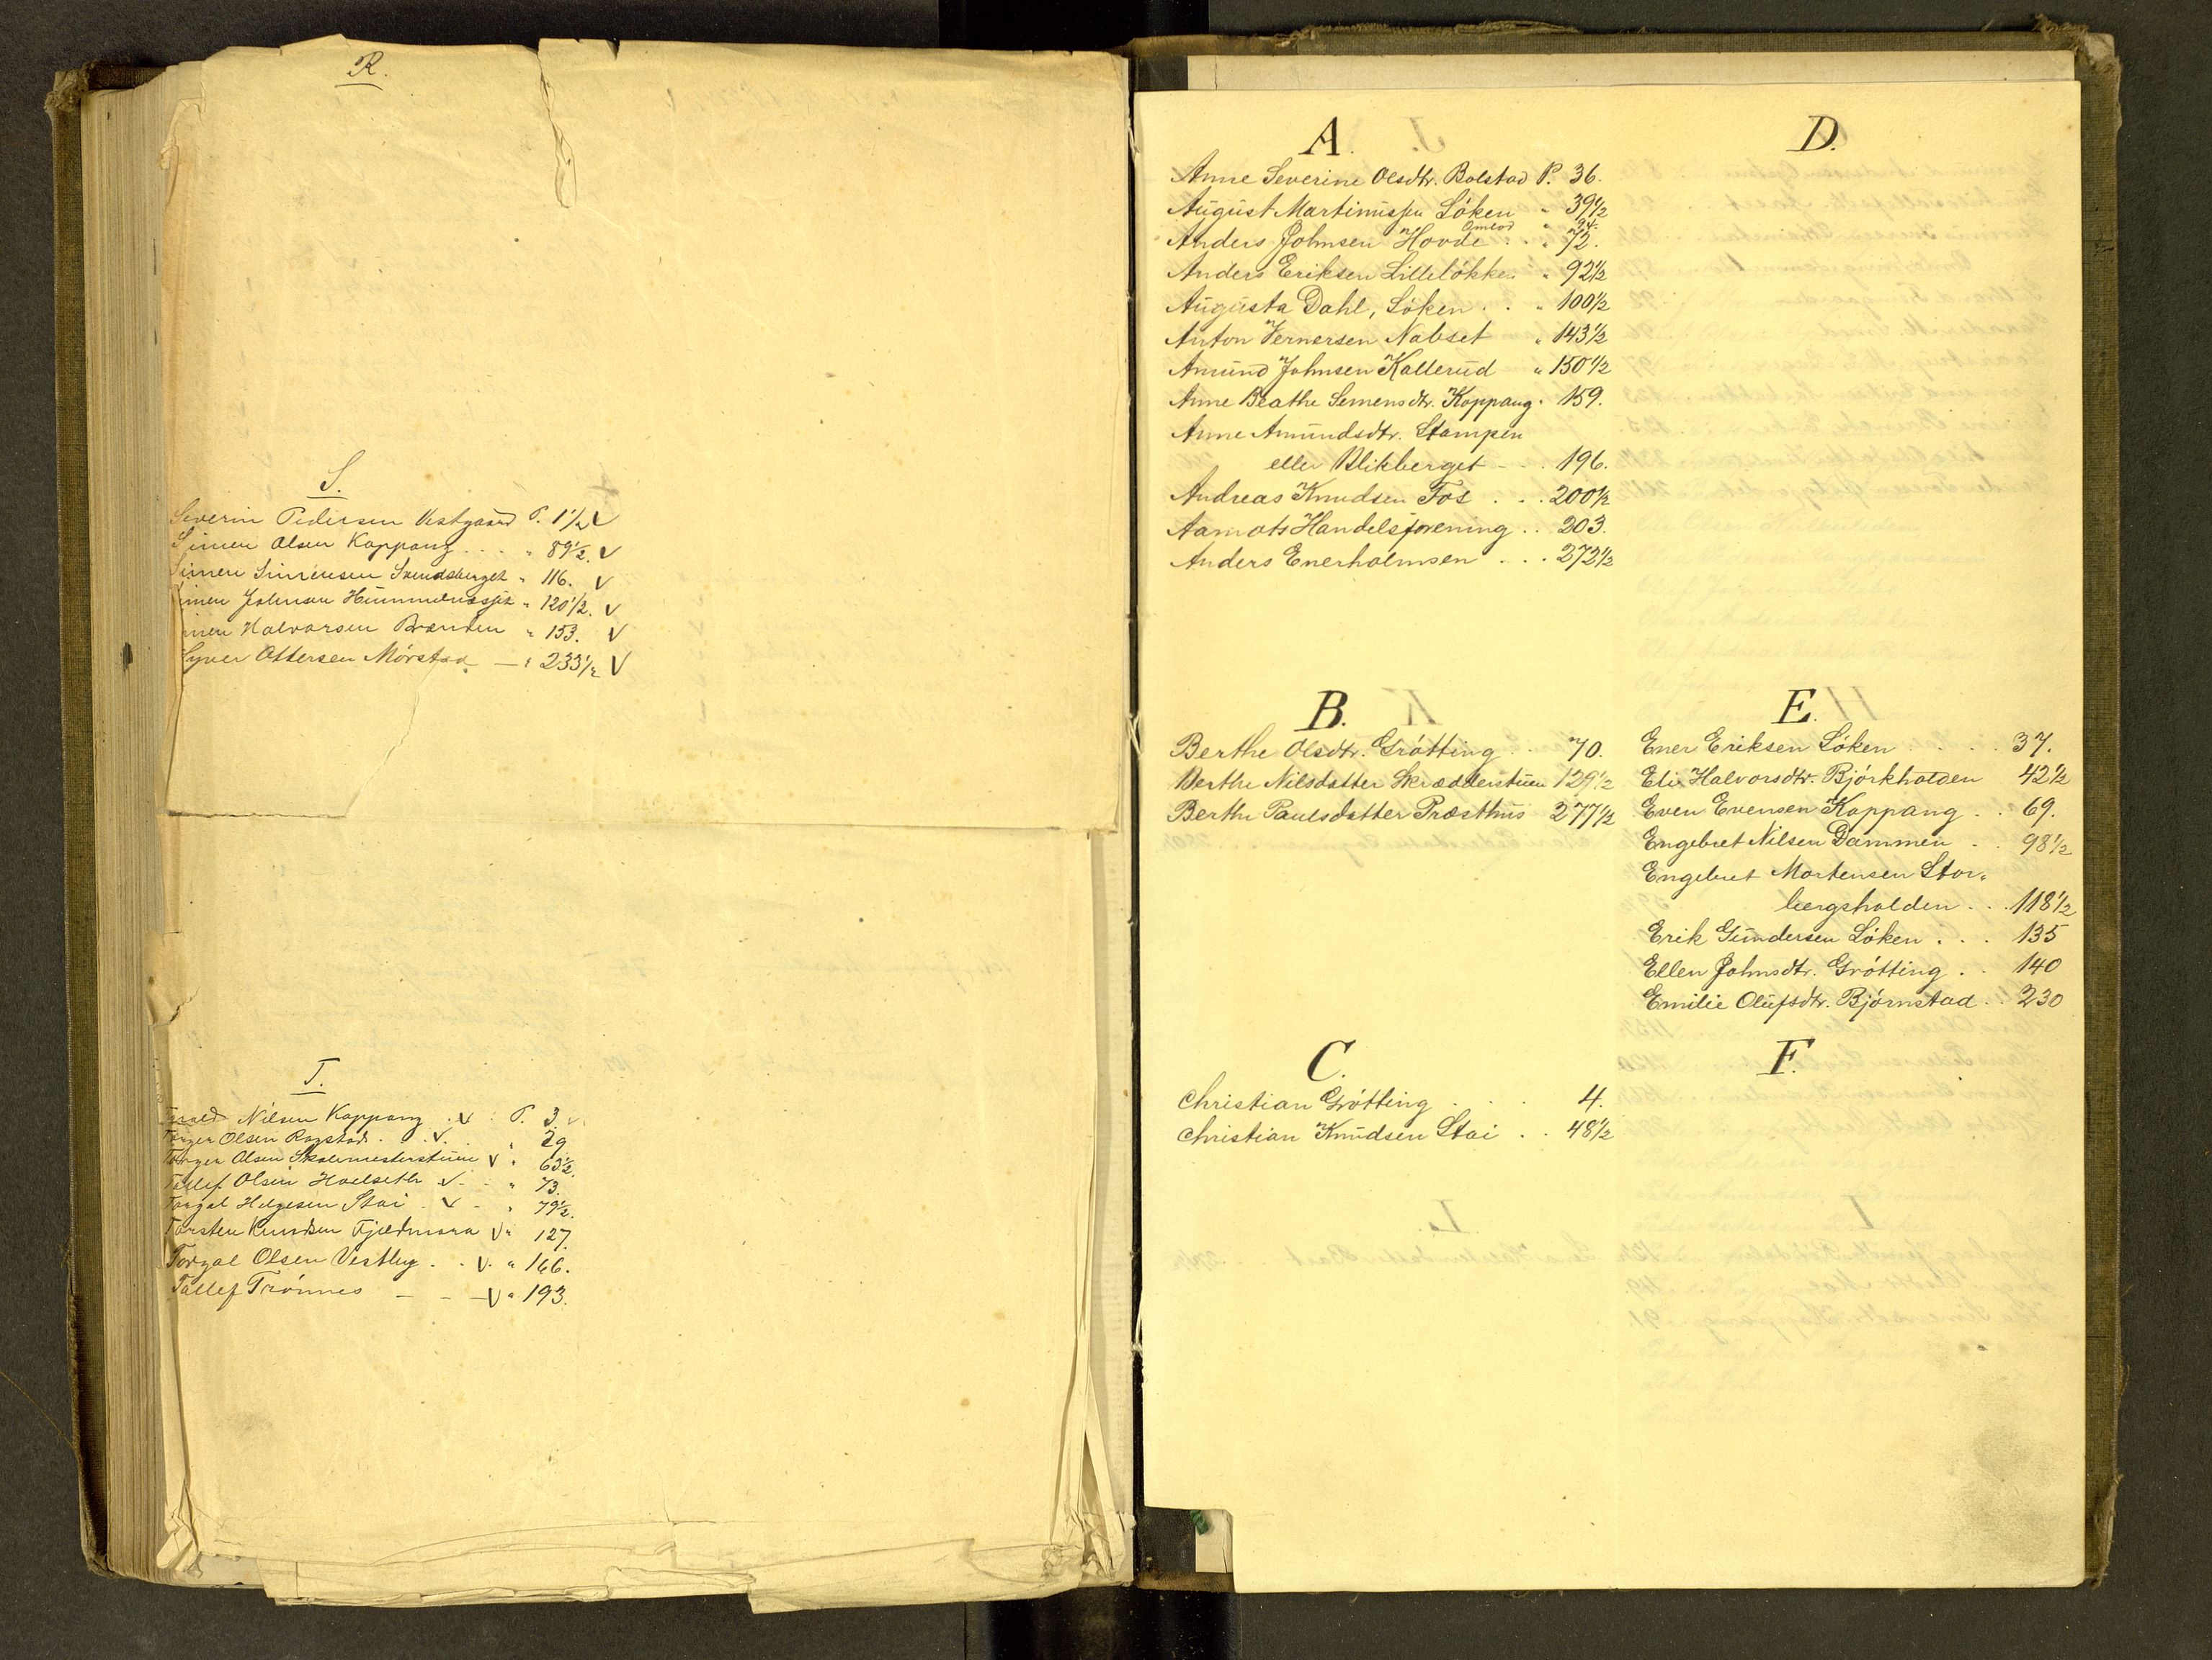 R.
S.
Severin Pedersen Vestgaard P. 1½ V
Simen Olsen Koppang . . . " 89½. V
Simen Simensen Svendsberget " 116. V
imen Johnsen " 120½. V
imen Halvorsen Brænden " 153. V
Syver Ottersen Mórstad — " 233½ V
T.
Nilsen Koppang . V : P. 3. v.
Torger Olsen Rogstad . . V. . " 29.
Torger Olsen Skolemesterstuen V " 63½.
Tollef Olsen Hoelseth V . - " 73.
Torgal Helgesen Stai . V - " 79½.
Torsten Knudsen Fjeldmora V " 127.
Torgal Olsen Vestby . . V. " 166.
Tollef Trónnes — - — V " 193.
A.
Anne Severine Olsdtr. Bolstad P. 36.
August Martinussen Lóken " 39½
Omlod 94.
Anders Johnsen Hovde . . " 72.
Anders Eriksen Lillelókken " 92½
Augusta Dahl, Lóken . . " 100½
Anton Vernersen Nabset " 143½
Amund Johnsen Kallerud " 150½
Anne Beathe Semensdtr. Koppang " 159.
Anne Amundsdtr. Stampen
eller Blikberget - . . 196.
Andreas Knudsen Fos . . . 200½
Aamots Handelsforening . . 203.
Anders Enerholmsen . . . 272½
B.
Berthe Olsdtr. Grótting . . 70.
Berthe Nilsdatter Skrædderstuen 129½
Berthe Paulsdatter Præsthus 277½
C.
Christian Grótting . . . 4.
Christian Knudsen Stai . . 48½
D.
E.
Ener Eriksen Lóken . . . . 37.
Eli Halvorsdtr. Bjórkholden 42½
Even Evensen Koppang . . 69.
Engebret Nilsen Dammen - . 98½
Engebret Mortensen Stor-
bergsholden . . . 118½
Erik Gundersen Lóken . . . 135
Ellen Johnsdtr. Grótting . . 140
Emilie Olufsdtr. Bjórnstad . . 230
F.